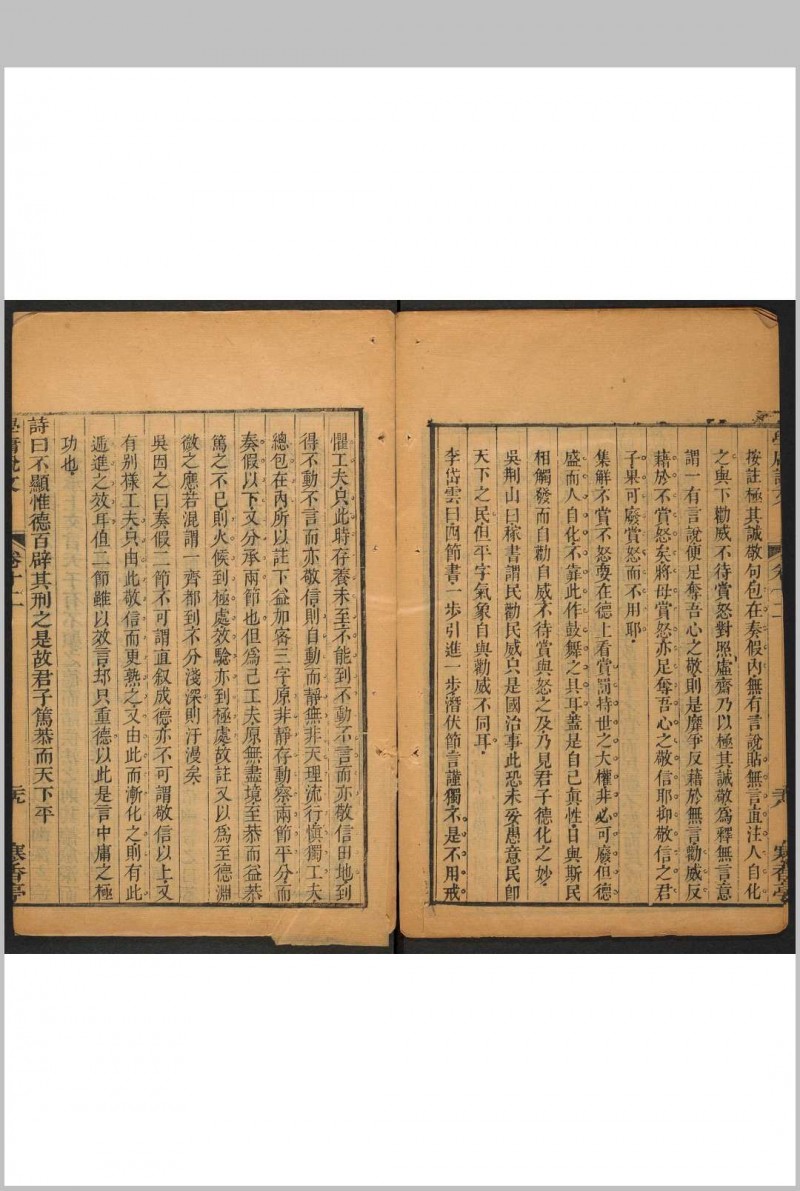 按註極其誠敬句包在奏假內無有言說貼無言直注人自化
之與下勸威不待賞怒對照虛齋乃以極其誠敬為釋無言意
謂一有言說便足奪吾心之敬則是靡爭反藉於無言勸威反
藉於不賞怒矣將毋賞怒亦足奪吾心之敬信耶抑敬信之君
子果可廢賞怒而不用耶
集解不賞不怒要在德上看賞罰持世之大權非必可廢但德
盛而人自化不靠此作鼓舞之具耳蓋是自己真性自與斯民
相觸發而自勸自威不待賞與怒之及乃見君子德化之妙
吳荊山曰稼書謂民勸民威只是國治事此恐未妥愚意民即
天下之民但平字氣象自與勸威不同耳
李岱雲曰四節書一步引進一步潛伏節言謹獨不是不用戒
懼工夫只此時存養未至不能到不動不言而亦敬信田地到
得不動不言而亦敬信則自動而靜無非天理流行慎獨工夫
總包在內所以註下益加密三字原非靜存動察兩節平分而
奏假以下又分承兩節也但為己工夫原無盡境至恭而益恭
篤之不已則火候到極處效驗亦到極處故註又以為至德淵
微之應若混謂一齊都到不分淺深則汗漫矣
吳因之曰奏假二節不可謂直叙成德亦不可謂敬信以上又
有別樣工夫只由此敬信而更熟之又由此而漸化之則有此
遞進之效耳值二節雖以效言却只重德以此是言中庸之極
功也
詩曰不顯惟德百辟其刑之是故君子篤恭而天下平
卷十二
寒香亭